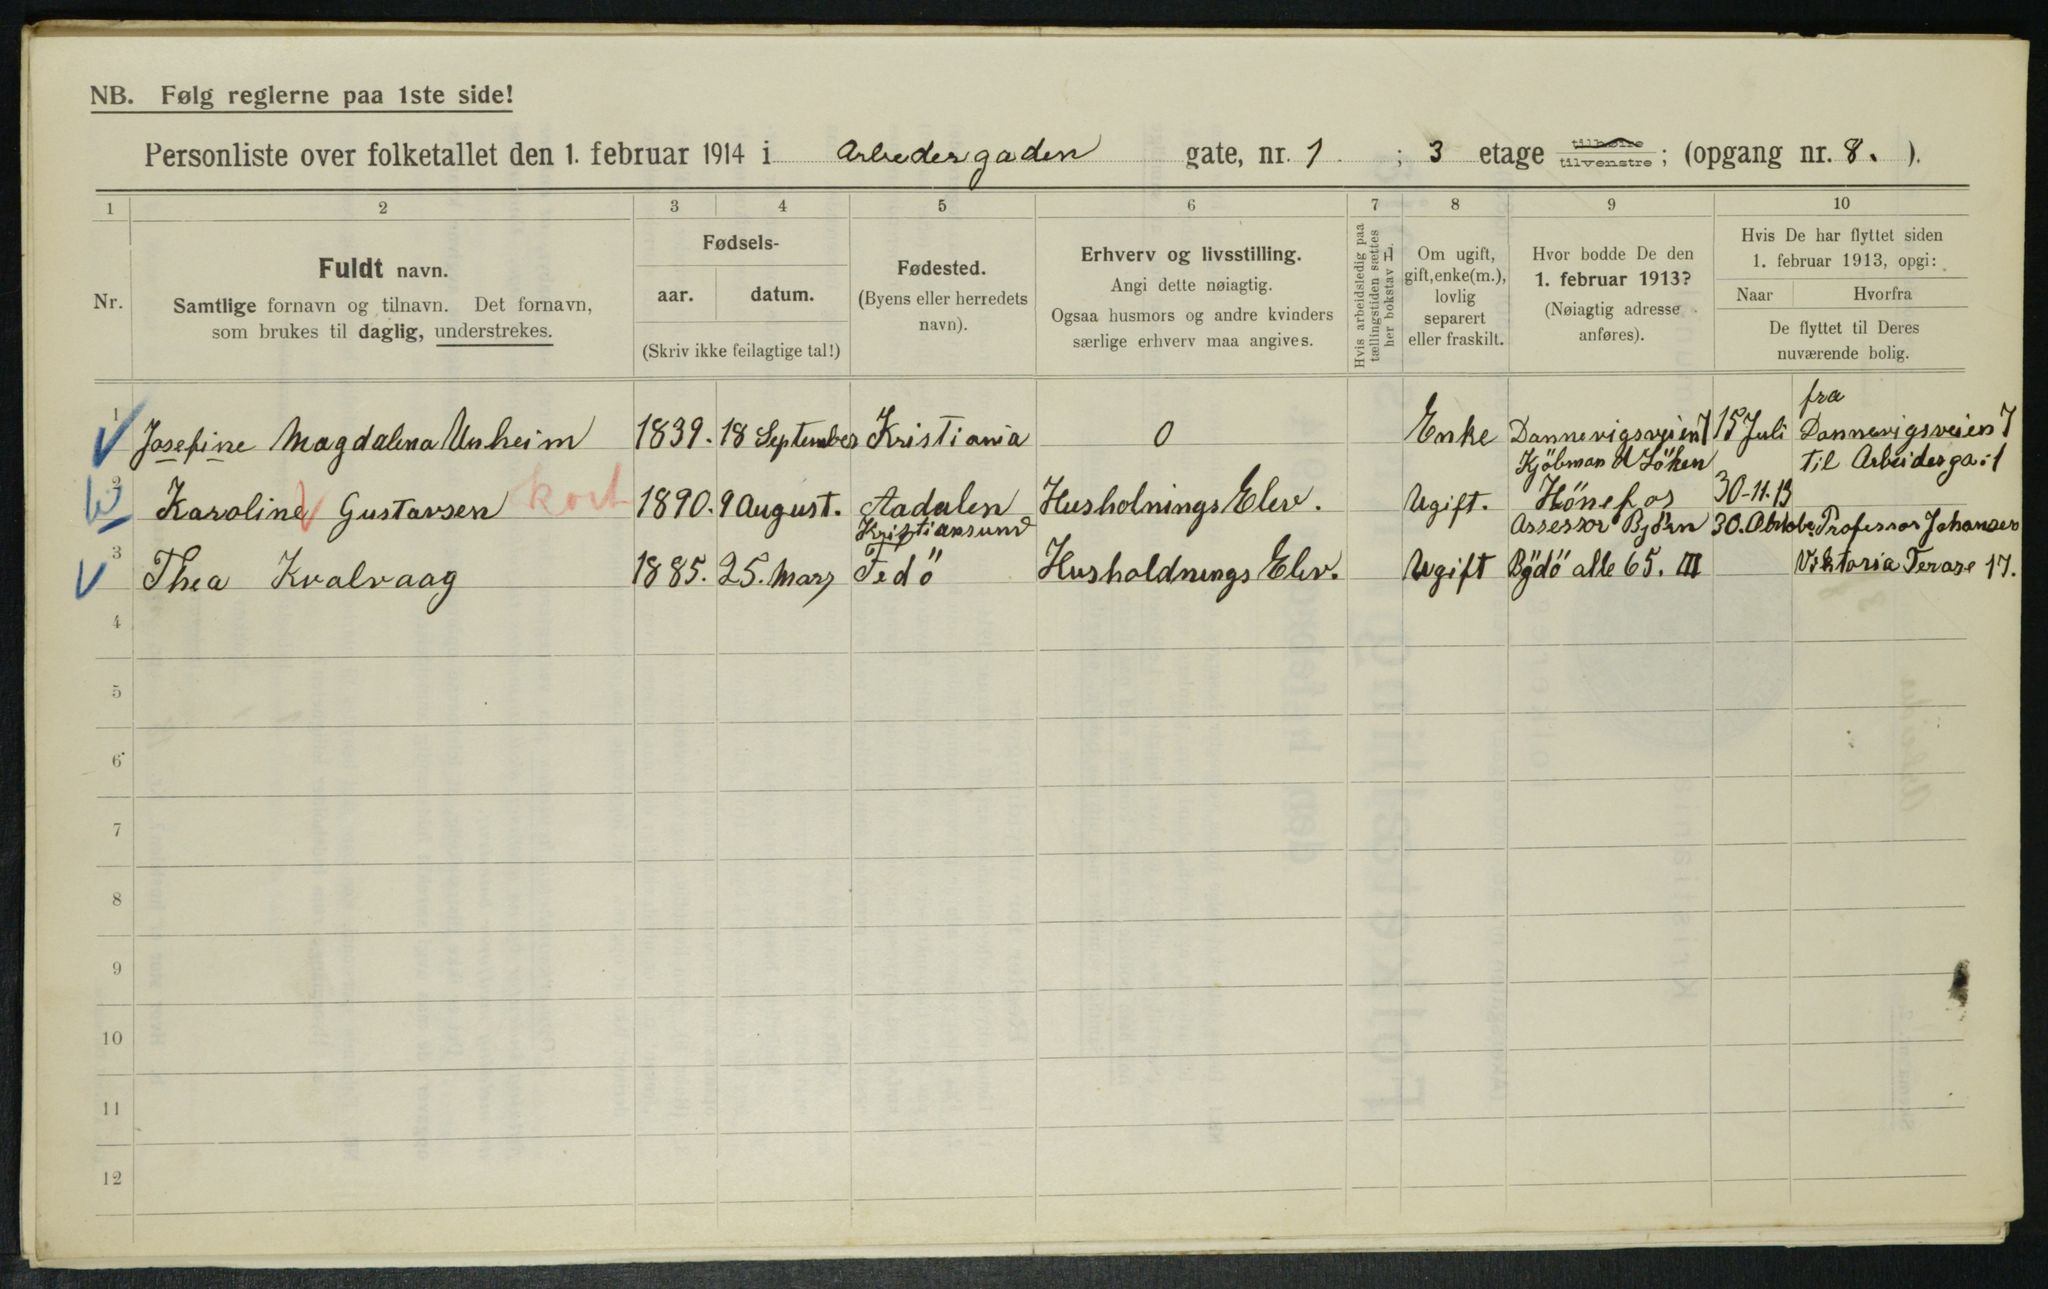 NB. Følg reglerne paa 1ste side!
Personliste over folketallet den 1. februar 1914 i Arbeidergaden gate, nr. 1 ; 3 etage tilhøire tilvenstre ; (opgang nr. 8. ).
1 2 3 4 5 6 7 8 9 10
Nr.
Fuldt navn.
Samtlige fornavn og tilnavn. Det fornavn,
som brukes til daglig, understrekes.
Fødsels-
aar. datum.
(Skriv ikke feilagtige tal!)
Fødested.
(Byens eller herredets
navn).
Erhverv og livsstilling.
Angi dette nøiagtig.
Ogsaa husmors og andre kvinders
særlige erhverv maa angives.
Hvis arbeidsledig paa
tællingstiden sættes
her bokstav L
Om ugift,
gift, enke(m.),
lovlig
separert
eller fraskilt.
Hvor bodde De den
1. februar 1913?
(Nøiagtig adresse
anføres).
Hvis De har flyttet siden
1. februar 1913, opgi:
Naar Hvorfra
De flyttet til Deres
nuværende bolig.
1 Josefine Magdalena Unheim 1839. 18 September Kristiania 0 Enke Dannevigsveien 7 15 Juli fra Dannevigsveien 7 til Arbeiderga. 1
2 Karoline Gustavsen kort 1890. 9 August. Aadalen Husholnings Elev. Ugift. Kjöbman Hönefos 30-11.13
3 Thea Kvalvaag 1885. 25. Mars Kristiansund Fedö Husholdnings Elev. Ugift Assessor Björn Bygdö alle 65. III 30. Professor Johansen Viktoria Terase 17.
4
5
6
7
8
9
10
11
12